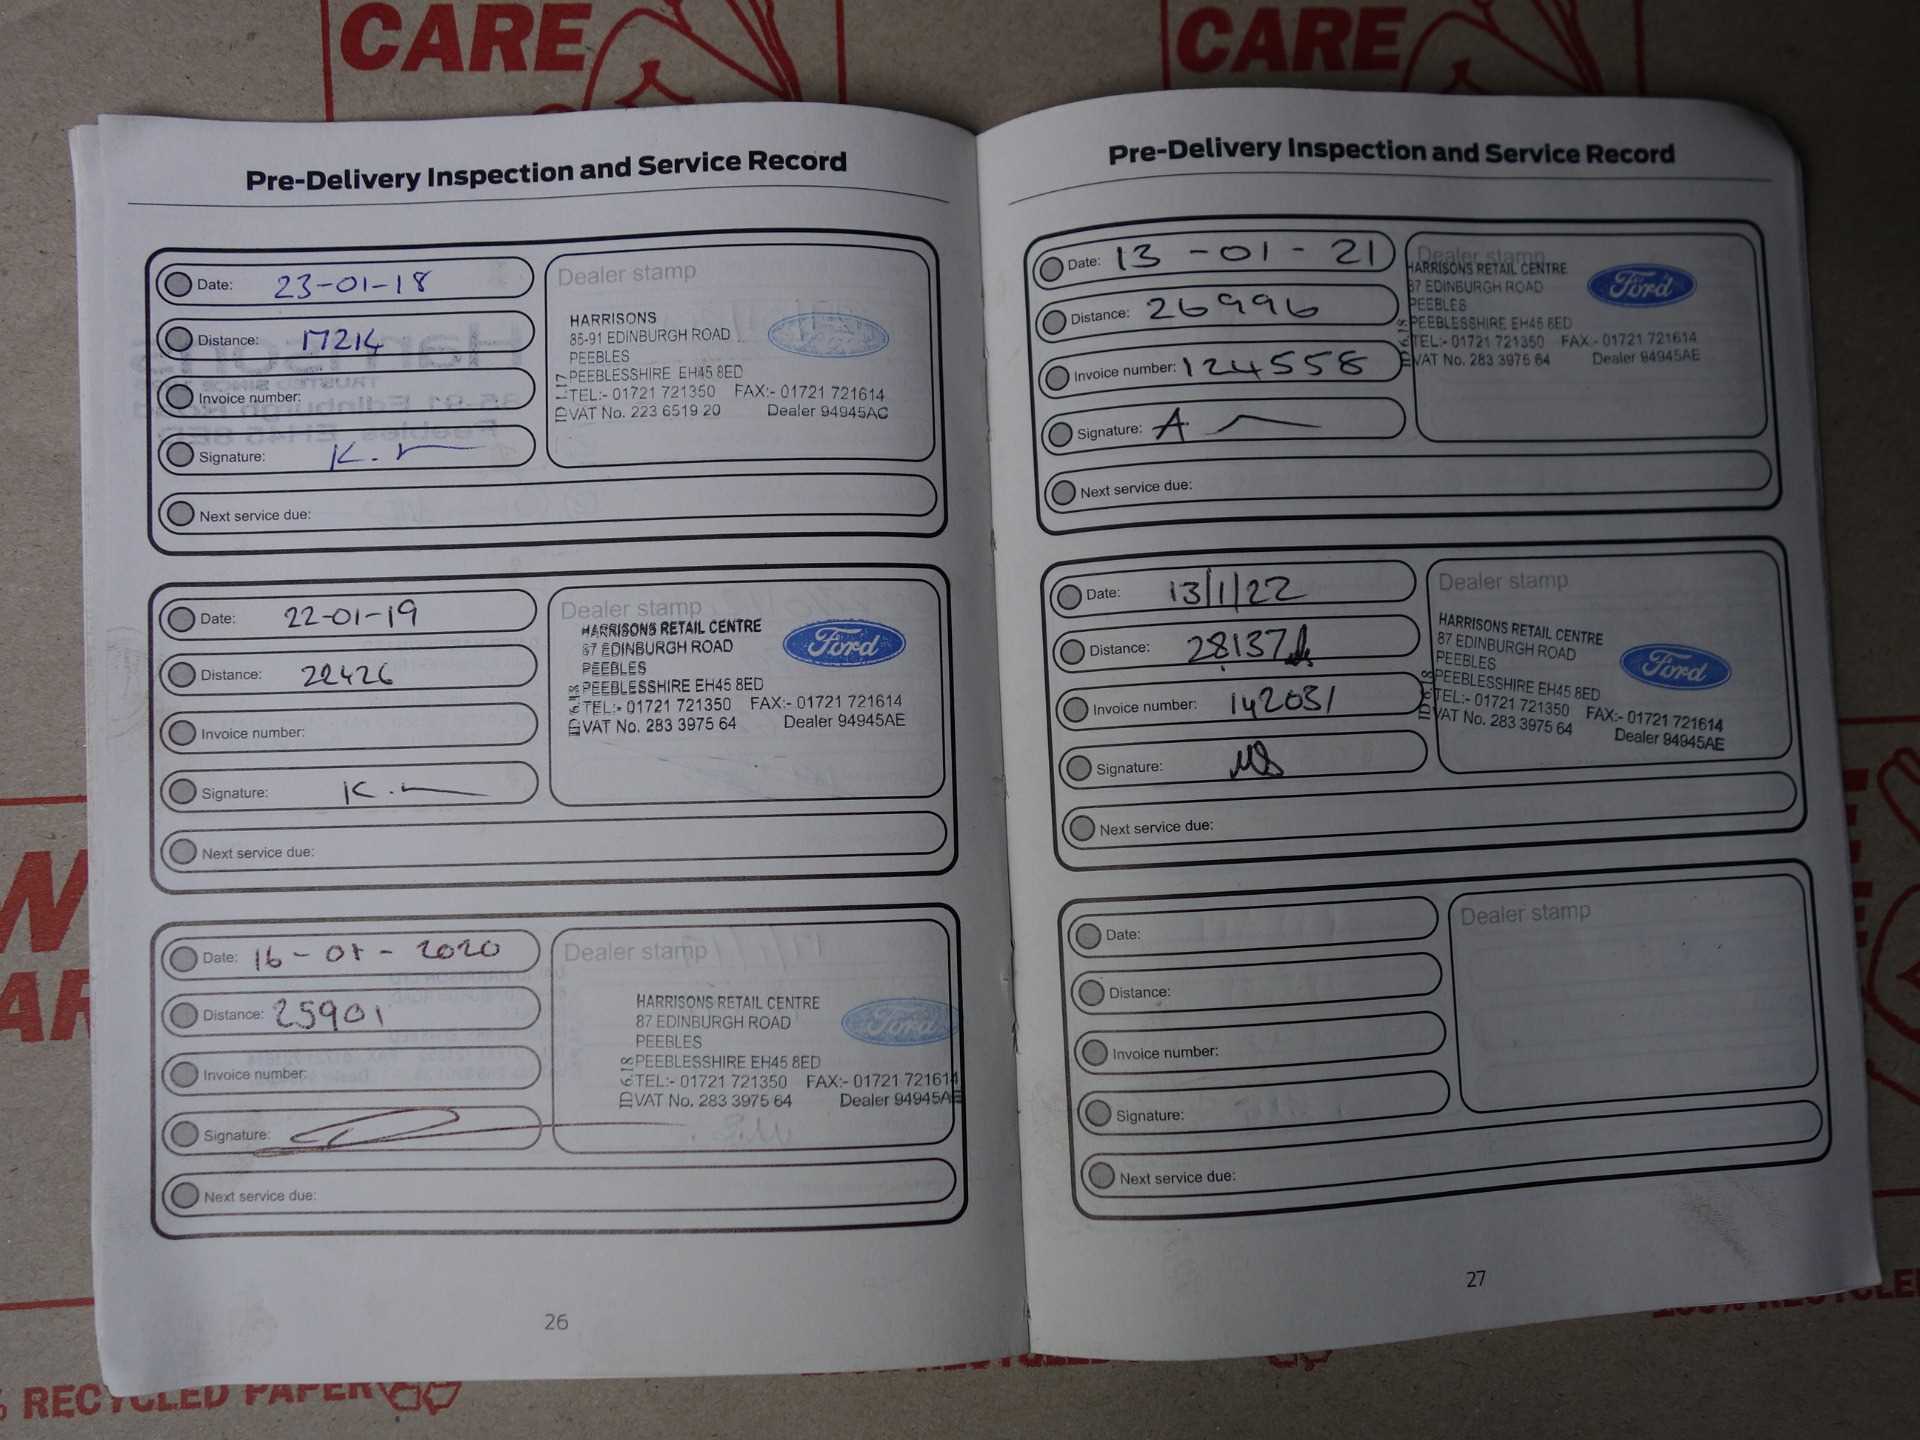 CARE
CARE
Pre-Delivery Inspection and Service Record
Date: 23-01-18
Distance: 17214
Invoice number:
Signature: K.
Next service due:
Dealer stamp
HARRISONS
85-91 EDINBURGH ROAD
PEEBLES
PEEBLESSHIRE EH45 8ED
TEL:- 01721 721350 FAX:- 01721 721614
VAT No. 223 6519 20 Dealer 94945AC
Date: 22-01-19
Distance: 22426
Invoice number:
Signature: K.
Next service due:
Dealer stamp
HARRISONS RETAIL CENTRE
87 EDINBURGH ROAD
PEEBLES
PEEBLESSHIRE EH45 8ED
TEL:- 01721 721350 FAX:- 01721 721614
VAT No. 283 3975 64 Dealer 94945AE
Ford
Date: 16-01-2020
Distance: 25901
Invoice number:
Signature:
Next service due:
Dealer stamp
HARRISONS RETAIL CENTRE
87 EDINBURGH ROAD
PEEBLES
PEEBLESSHIRE EH45 8ED
TEL:- 01721 721350 FAX:- 01721 721614
VAT No. 283 3975 64 Dealer 94945AE
Ford
26
Pre-Delivery Inspection and Service Record
Date: 13-01-21
Distance: 26996
Invoice number: 124558
Signature: A
Next service due:
Dealer stamp
HARRISONS RETAIL CENTRE
87 EDINBURGH ROAD
PEEBLES
PEEBLESSHIRE EH45 8ED
TEL:- 01721 721350 FAX:- 01721 721614
VAT No. 283 3975 64 Dealer 94945AE
Ford
Date: 13/1/22
Distance: 28137
Invoice number: 142031
Signature:
Next service due:
Dealer stamp
HARRISONS RETAIL CENTRE
87 EDINBURGH ROAD
PEEBLES
PEEBLESSHIRE EH45 8ED
TEL:- 01721 721350 FAX:- 01721 721614
VAT No. 283 3975 64 Dealer 94945AE
Ford
Date:
Distance:
Invoice number:
Signature:
Next service due:
Dealer stamp
27
% RECYCLED PAPER